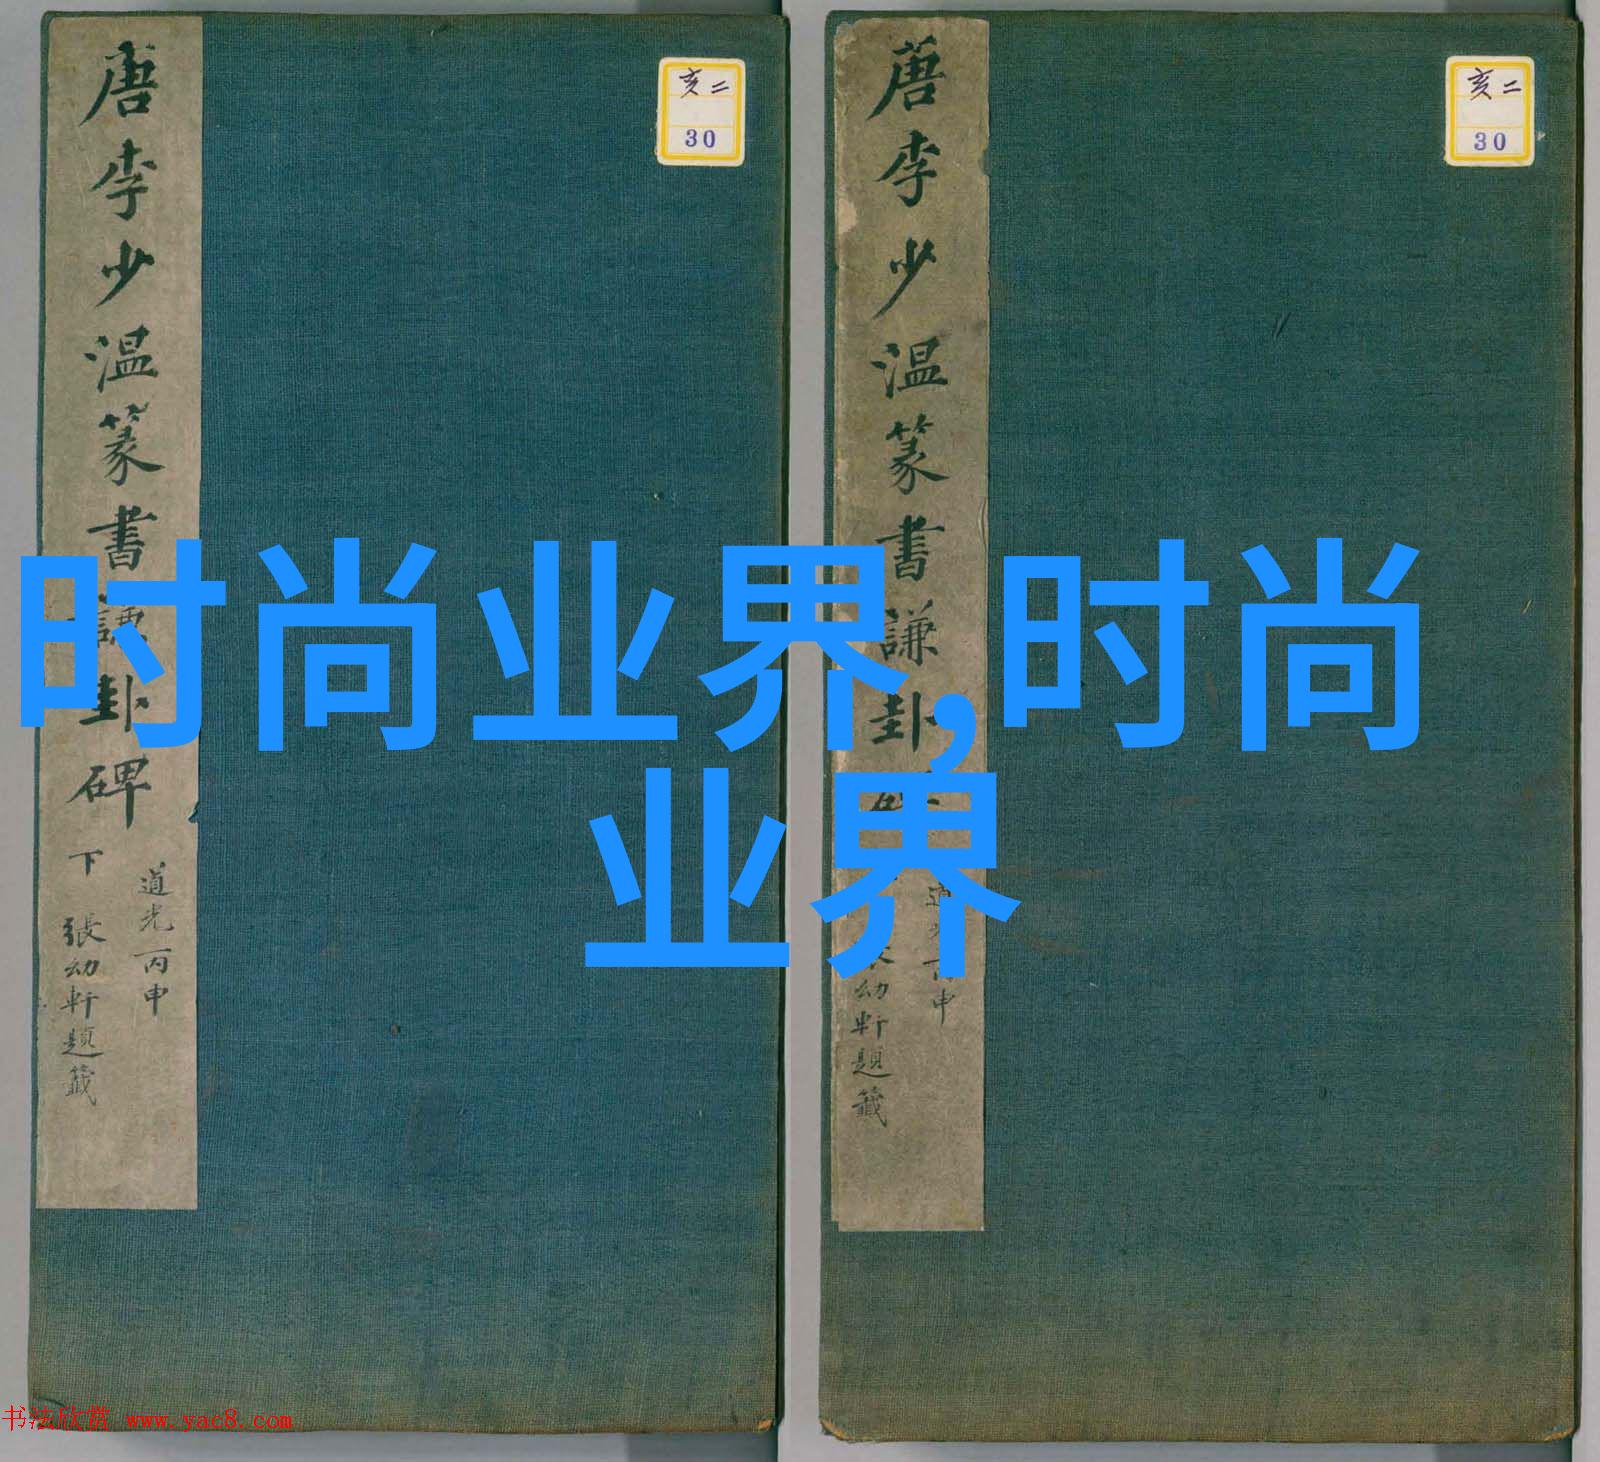 唐李少温篆書謙卦碑 下
道光丙申
張幼軒題籤
亥二
30
唐李少温篆書謙卦
道光丙申
幼軒題籤
亥二
30
时尚业界,时尚
业界
书法欣赏 www.yac8.com